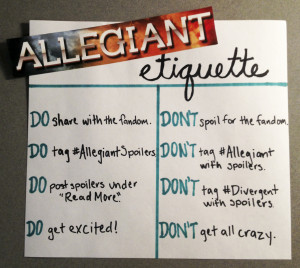 ALLEGIANT
etiquette
DO share with the fandom.
DO tag #AllegiantSpoilers.
DO post spoilers under
"Read More"
DO get excited!
DON'T spoil for the fandom.
DON'T tag #Allegiant
with spoilers.
DON'T tag #Divergent
with spoilers.
DON'T get all crazy.